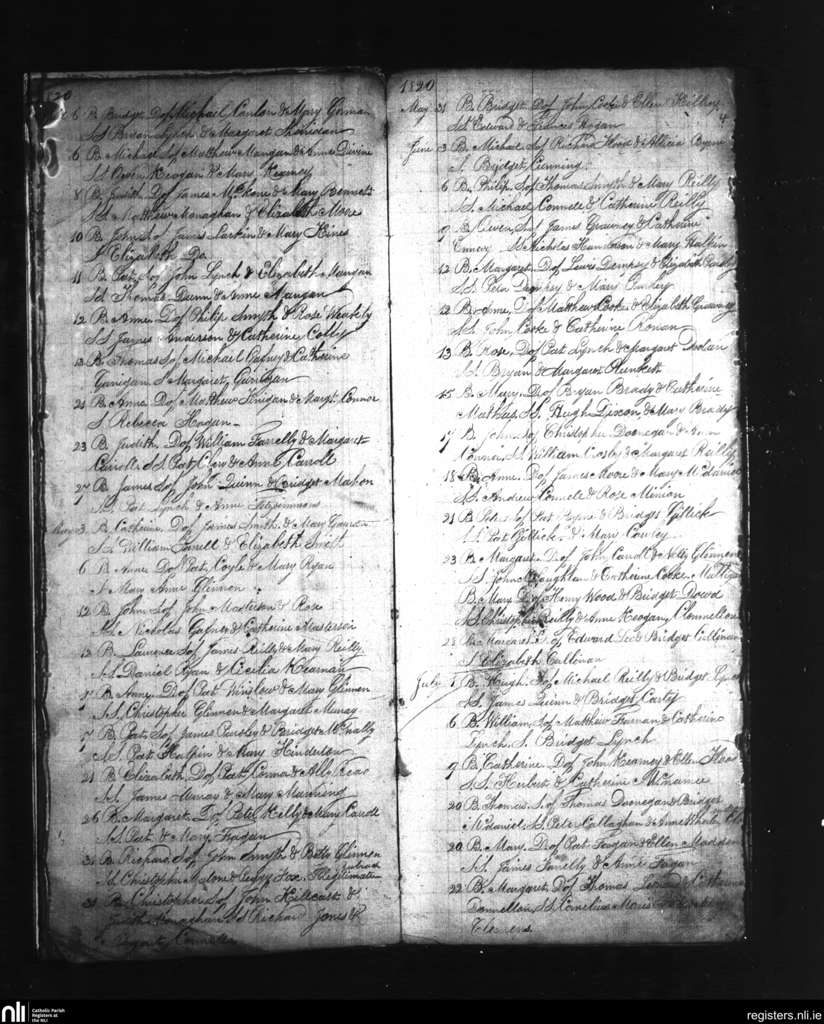 20
6 B. Bridget D. of Michael Conlon & Mary Gorman
S.S. Brian Lynch & Margaret Sheridan
6 B. Michael S. of Mathew Mangan & Anne Divine
S.S. Owen Keogan & Mary Kearney
8 B. Judith D. of James McKone & Mary Bennett
S.S. Matthew Monaghan & Elizabeth Moore
10 B. John S. of James Larkin & Mary Hines
S. Elizabeth Do.
11 B. Pat S. of John Lynch & Elizabeth Mangan
S.S. Thomas Dunn & Anne Mangan
12 B. Anne D. of Philip Smyth & Rose Weakely
S.S. James Anderson & Catherine Colby
B. Thomas S. of Michael Gafney & Catherine
Garigan S. Margaret Garigan
21 B. Anne D. of Matthew Finigan & Margt. Connor
S. Rebecca Hagan
23 B. Judith D. of William Farrelly & Margaret
Carroll S.S. Pat Clew & Anne Carroll
27 B. James S. of John Quinn & Bridget Mahon
S.S. Pat Lynch & Anne Fitzsimmons
May 3 B. Catherine D. of James Smith & Mary
S.S. William Farrell & Elizabeth Smith
6 B. Anne D. of Pat Coyle & Mary Ryan
S. Mary Anne Glinnon
12 B. John S. of John Masterson & Rose
S.S. Nicholas Gafney & Catherine Masterson
12 B. Laurence S. of James Reilly & Mary Reilly
S.S. Daniel Ryan & Cecilia Kearnan
17 B. Anne D. of Pat Winslow & Mary Glinnen
S.S. Christopher Glinnen & Margaret Murray
17 B. Pat S. of James Pursley & Bridget McNally
S.S. Pat Halpin & Mary Hinderson
21 B. Elizabeth D. of Pat Connor & Ally
S.S. James Murray & Mary Manning
26 B. Margaret D. of Peter Kelly & Mary Caroll
S.S. Pat & Mary Fagan
B. Richard S. of John Smyth & Betty Glinnon
S.S. Christopher Malone & Fox. Illegitimate
B. Christopher S. of John Killcast &
Judith Monaghan S.S. Richard Jones &
Connolly
1820
4
May 31 B. Bridget D. of John Cooke & Ellen Killroy
S.S. Edward & Frances Hogan
June 3 B. Michael S. of Richard Hood & Allicia Byrne
S. Bridget Cunning
6 B. Philip S. of Thomas Smyth & Mary Reilly
S.S. Michael Connell & Catherine Reilly
9 B. Owen S. of James Grawney & Catherine
Ennor S.S. Nicholas Henderson & Mary Halpin
12 B. Margaret D. of Lewis Dempsy & Elizabeth
S.S. Peter Dempsey & Mary
12 B. Anne D. of Matthew Cooke & Elizabeth Grawney
S.S. John Cooke & Catherine Ronan
13 B. Rose D. of Pat Lynch & Margaret Dolan
S.S. Bryan & Margaret Plunkett
15 B. Mary D. of Bryan Brady & Catherine
Mathews S.S. Hugh Dixon & Mary Brady
17 B. John S. of Christopher Donegan & Anne
Connor S.S. William Cosby & Margaret Reilly
18 B. Anne D. of James Moore & Mary McDaniel
S.S. Andrew Connell & Rose Minion
21 B. Peter S. of Pat & Bridget Gillick
S.S. Pat Gillick & Mary Cowley
23 B. Margaret D. of John Caroll & Nelly Glinnen
S.S. John Coughlan & Catherine Cooke
B. Mary D. of Henry Wood & Bridget Dowd
S.S. Christopher Reilly & Anne Keogan
28 B. Margaret D. of Edward Lee & Bridget Cullinan
S. Elizabeth Cullinan
July 1 B. Hugh S. of Michael Reilly & Bridget Lynch
S.S. James Quinn & Bridget Carty
6 B. William S. of Matthew Furnan & Catherine
Lynch S. Bridget Lynch
9 B. Catherine D. of John Kearney & Ellen
S.S. Herbert & Catherine McManice
20 B. Thomas S. of Thomas Donegan & Bridget
McDaniel S.S. Peter Callaghan & Anne
20 B. Mary D. of Pat Fargan & Ellen Madden
S.S. James Farrelly & Annie Fargan
22 B. Margaret D. of Thomas
Donnellan S.S. Cornelius
Clemens
nli
Catholic Parish
Registers at
the NLI
registers.nli.ie